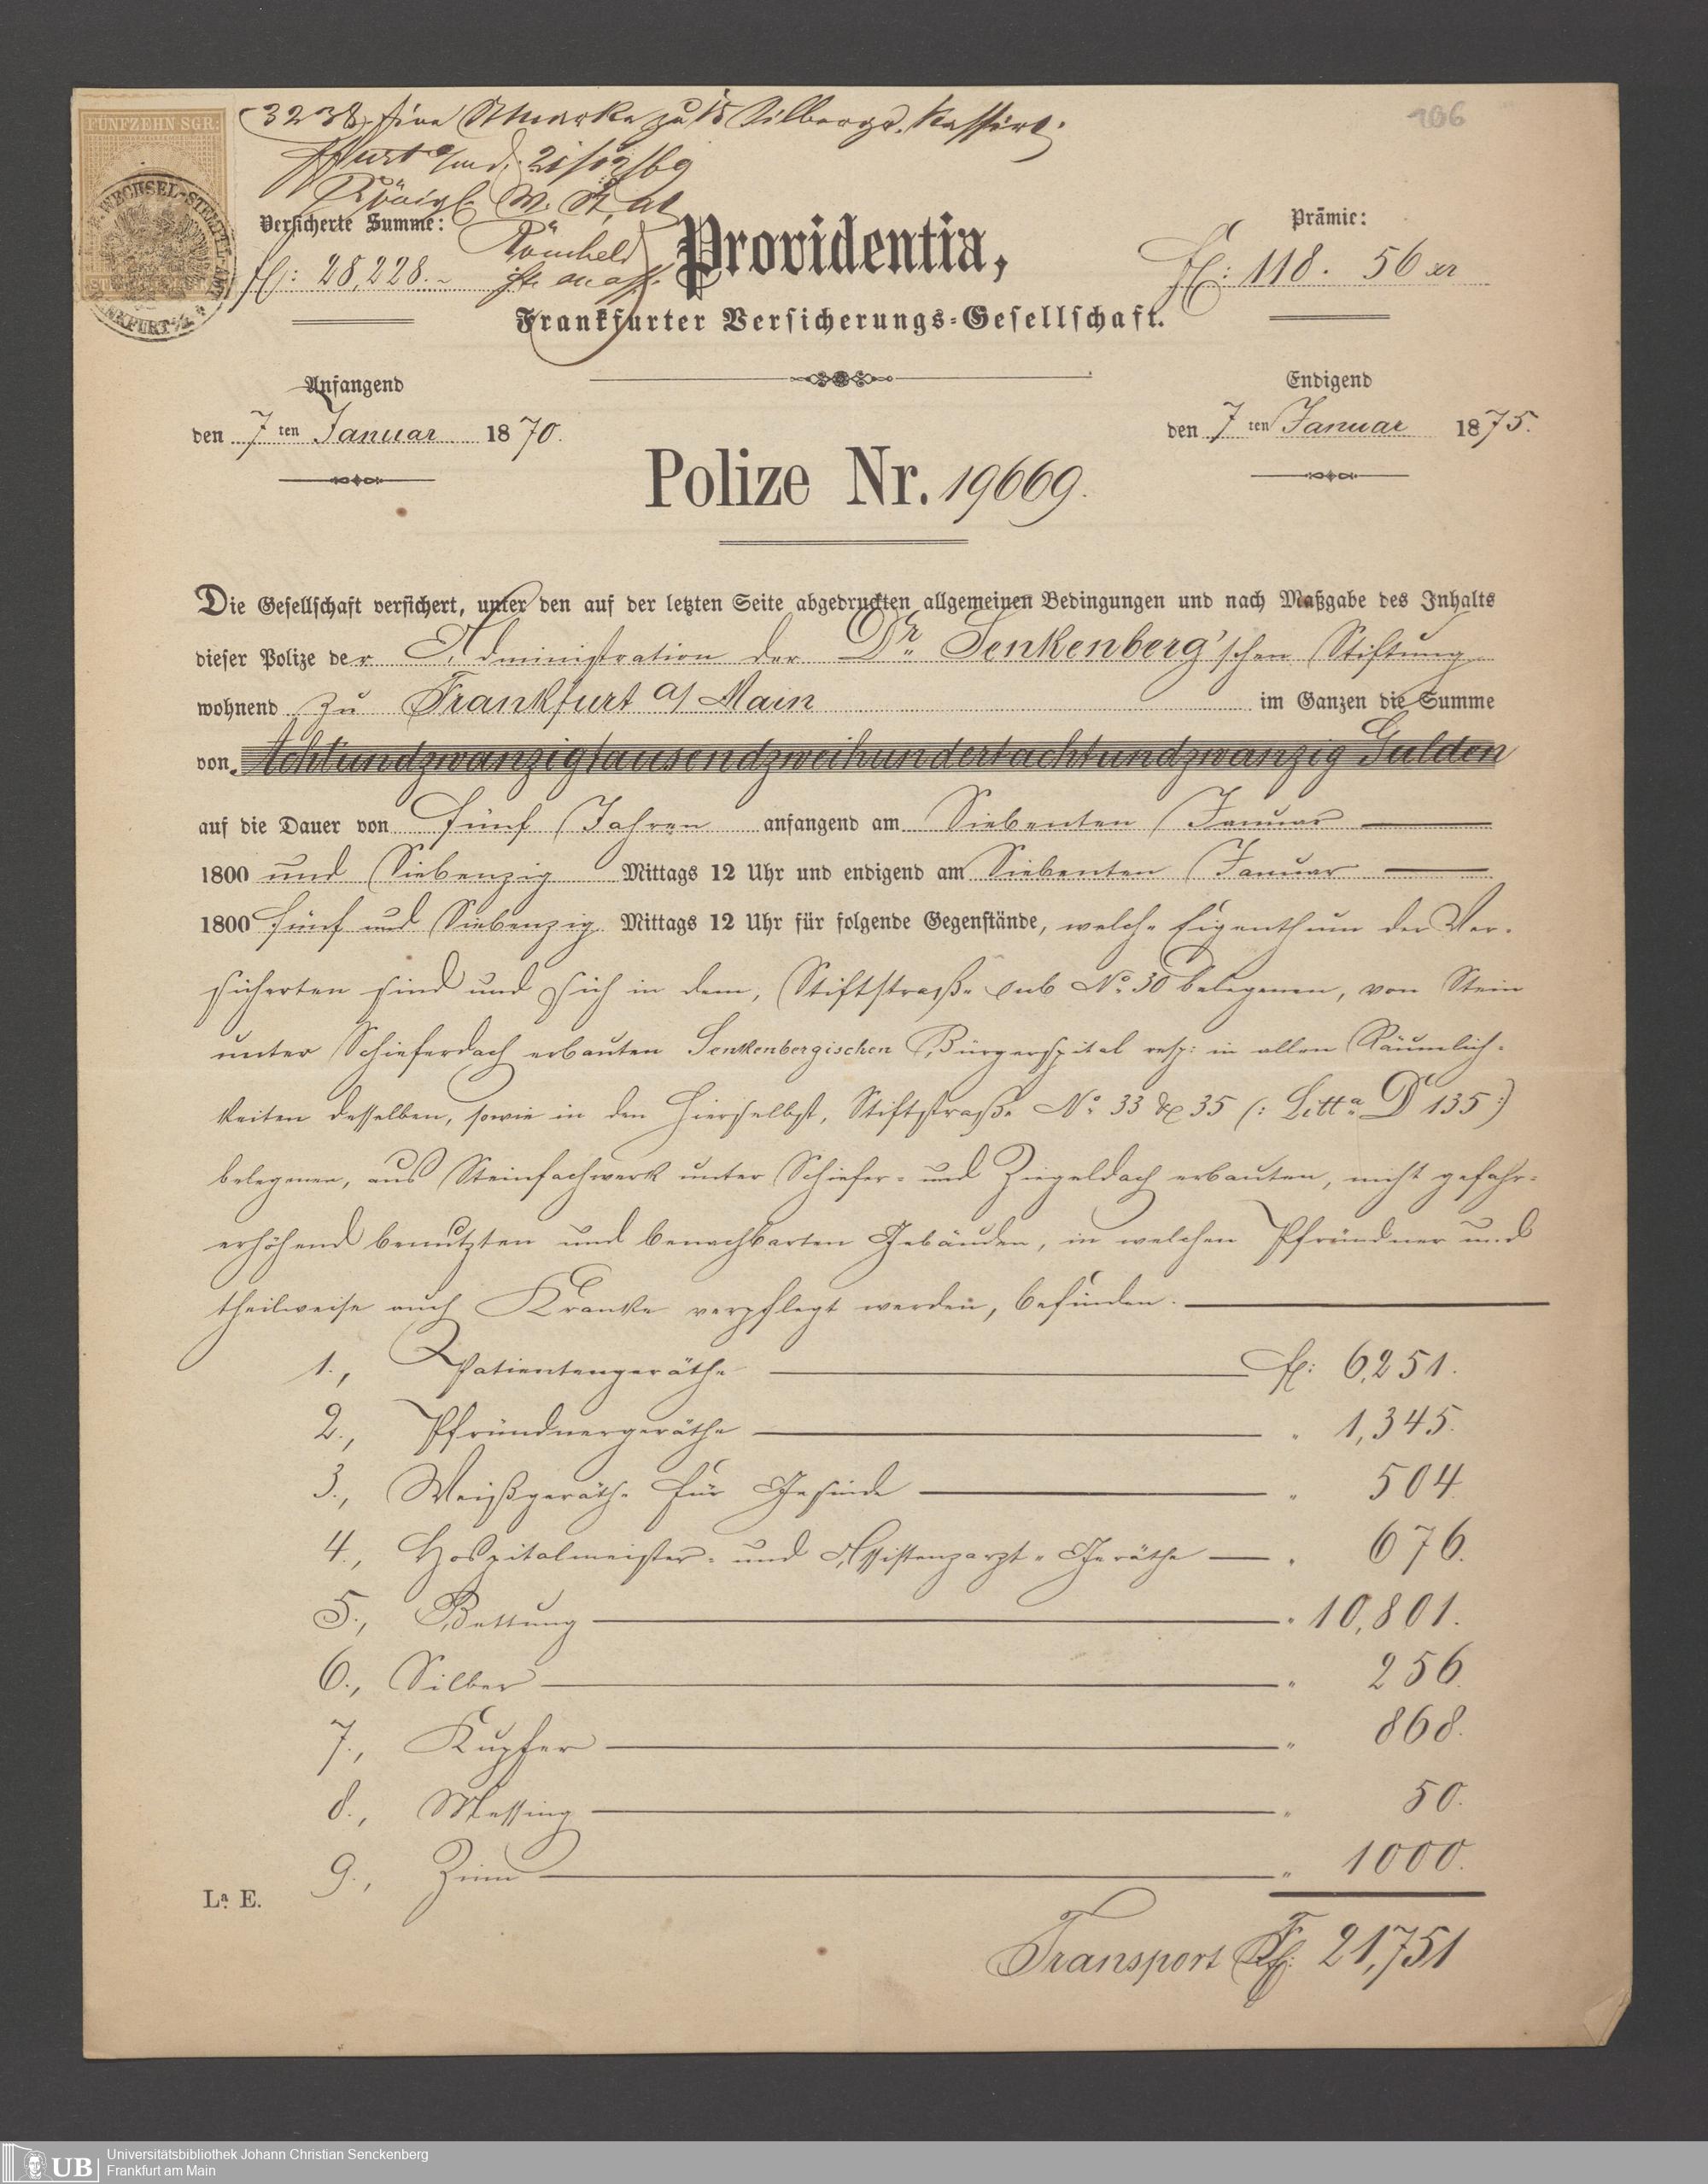 FÜNFZEHN SGR:
WECHSEL-STEMPEL-AMT
FRANKFURT a/M
3238. Eine Stmarke zu 15 Silbergr. kassirt.
Ffurt a/m d. 21/12/69
Königl. W. St. At
Römheld
106
Versicherte Summe:
fl: 28,228.-
Providentia,
Frankfurter Versicherungs-Gesellschaft.
Prämie:
fl: 118. 56 xr
Anfangend
den 7 ten Januar 1870.
Endigend
den 7 ten Januar 1875.
Polize Nr. 19669.
Die Gesellschaft versichert, unter den auf der letzten Seite abgedruckten allgemeinen Bedingungen und nach Maßgabe des Inhalts
dieser Polize der Administration der Dr. Senkenberg'schen Stiftung
wohnend zu Frankfurt a/ Main im Ganzen die Summe
von Achtundzwanzigtausendzweihundertachtundzwanzig Gulden
auf die Dauer von fünf Jahren anfangend am Siebenten Januar
1800 und Siebenzig Mittags 12 Uhr und endigend am Siebenten Januar
1800 fünf und Siebenzig Mittags 12 Uhr für folgende Gegenstände, welche Eigenthum der Ver-
sicherten sind und sich in dem, Stiftstraße sub No. 30 belegenen, von Stein
unter Schieferdach erbauten Senkenbergischen Bürgerspital resp: in allen Räumlich-
keiten desselben, sowie in den hierselbst, Stiftstraße No. 33 & 35 (: Litta D 135 :)
belegenen, aus Steinfachwerk unter Schiefer- und Ziegeldach erbauten, nicht gefahr-
erhöhend benutzten und benachbarten Gebäuden, in welchen Pfründner und
theilweise auch Kranke verpflegt werden, befinden.
1., Patientengeräthe fl: 6,251.
2., Pfründnergeräthe " 1,345.
3., Weißgeräthe für Gesinde " 504
4., Hospitalmeister- und Assistenzarzt-Geräthe " 676.
5., Bettung " 10,801.
6., Silber " 256.
7., Kupfer " 868.
8., Messing " 50.
9., Zinn " 1000.
La. E.
Transport fl: 21,751
UB
Universitätsbibliothek Johann Christian Senckenberg
Frankfurt am Main